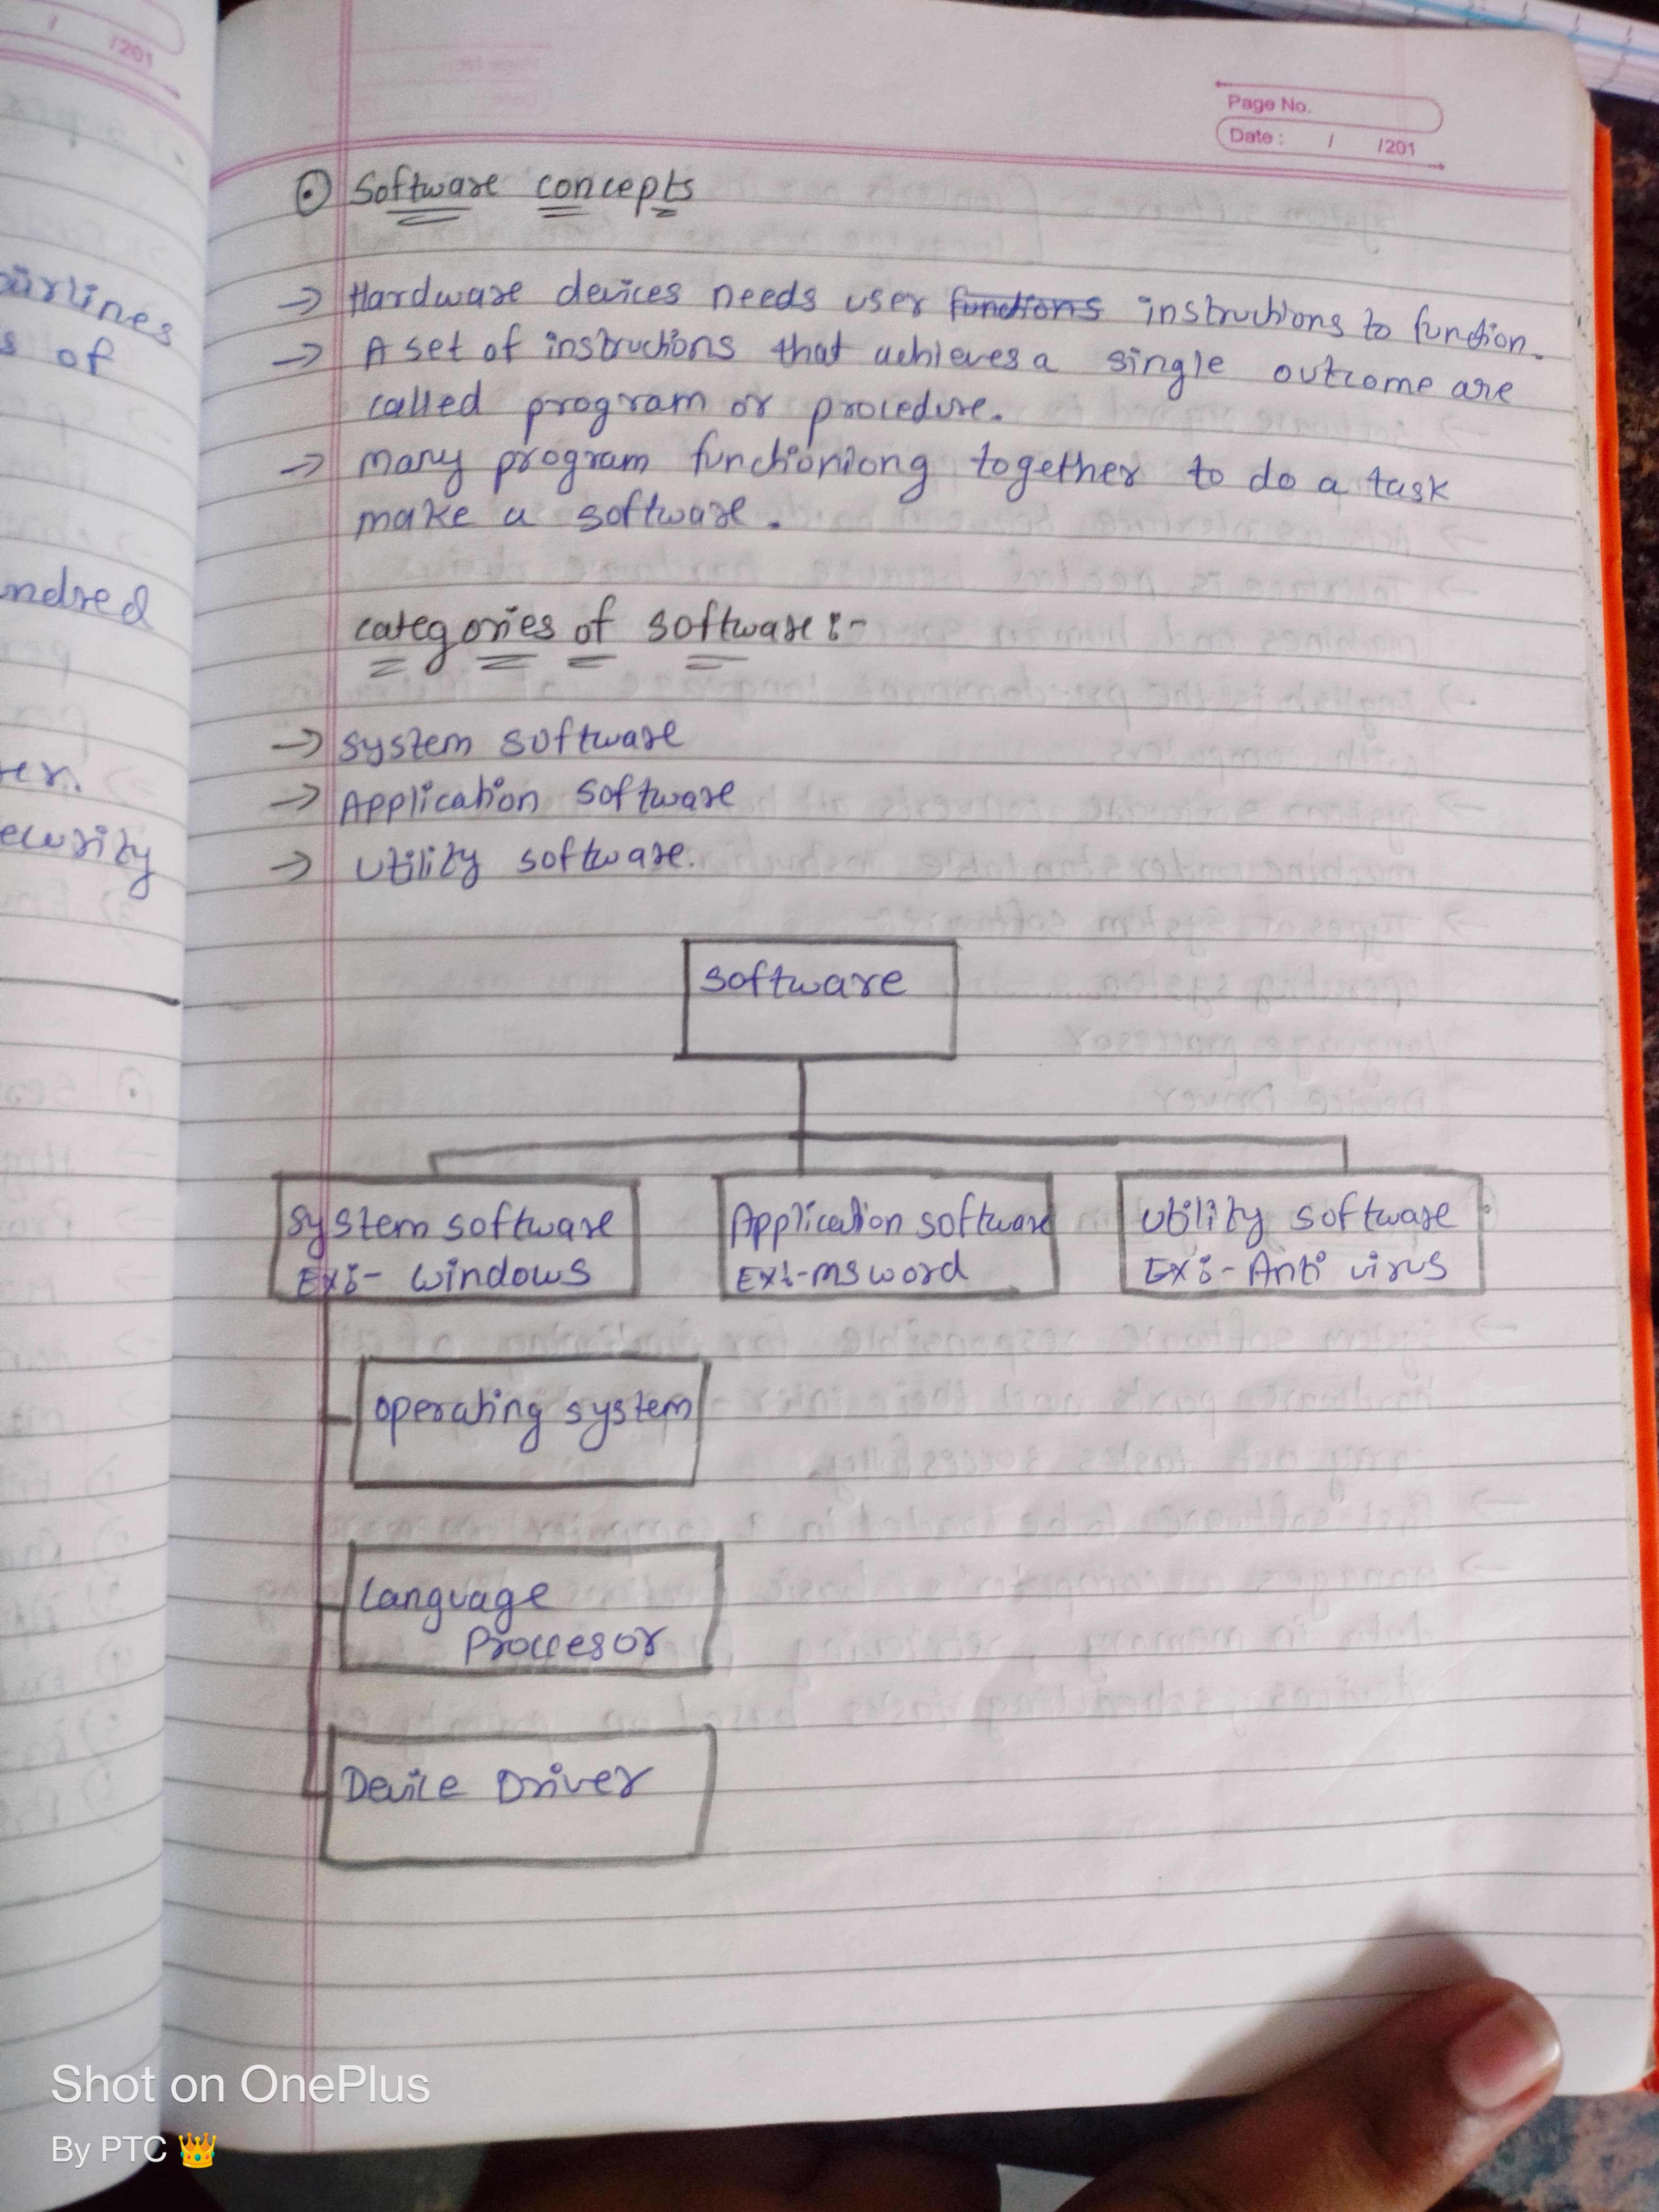 /201
Page No.
Date : / /201
Software concepts
→ Hardware devices needs user functions instructions to function.
→ A set of instructions that achieves a single outcome are
called program or procedure.
→ many program functioniong together to do a task
make a software.
categories of software :-
→ system software
→ Application software
→ Utility software.
software
system software
Ex:- windows
Application software
Ex:- ms word
Utility software
Ex:- Anti virus
operating system
Language
Proccesor
Device Driver
airlines
s of
ndred
er.
ecurity
Shot on OnePlus
By PTC 👑